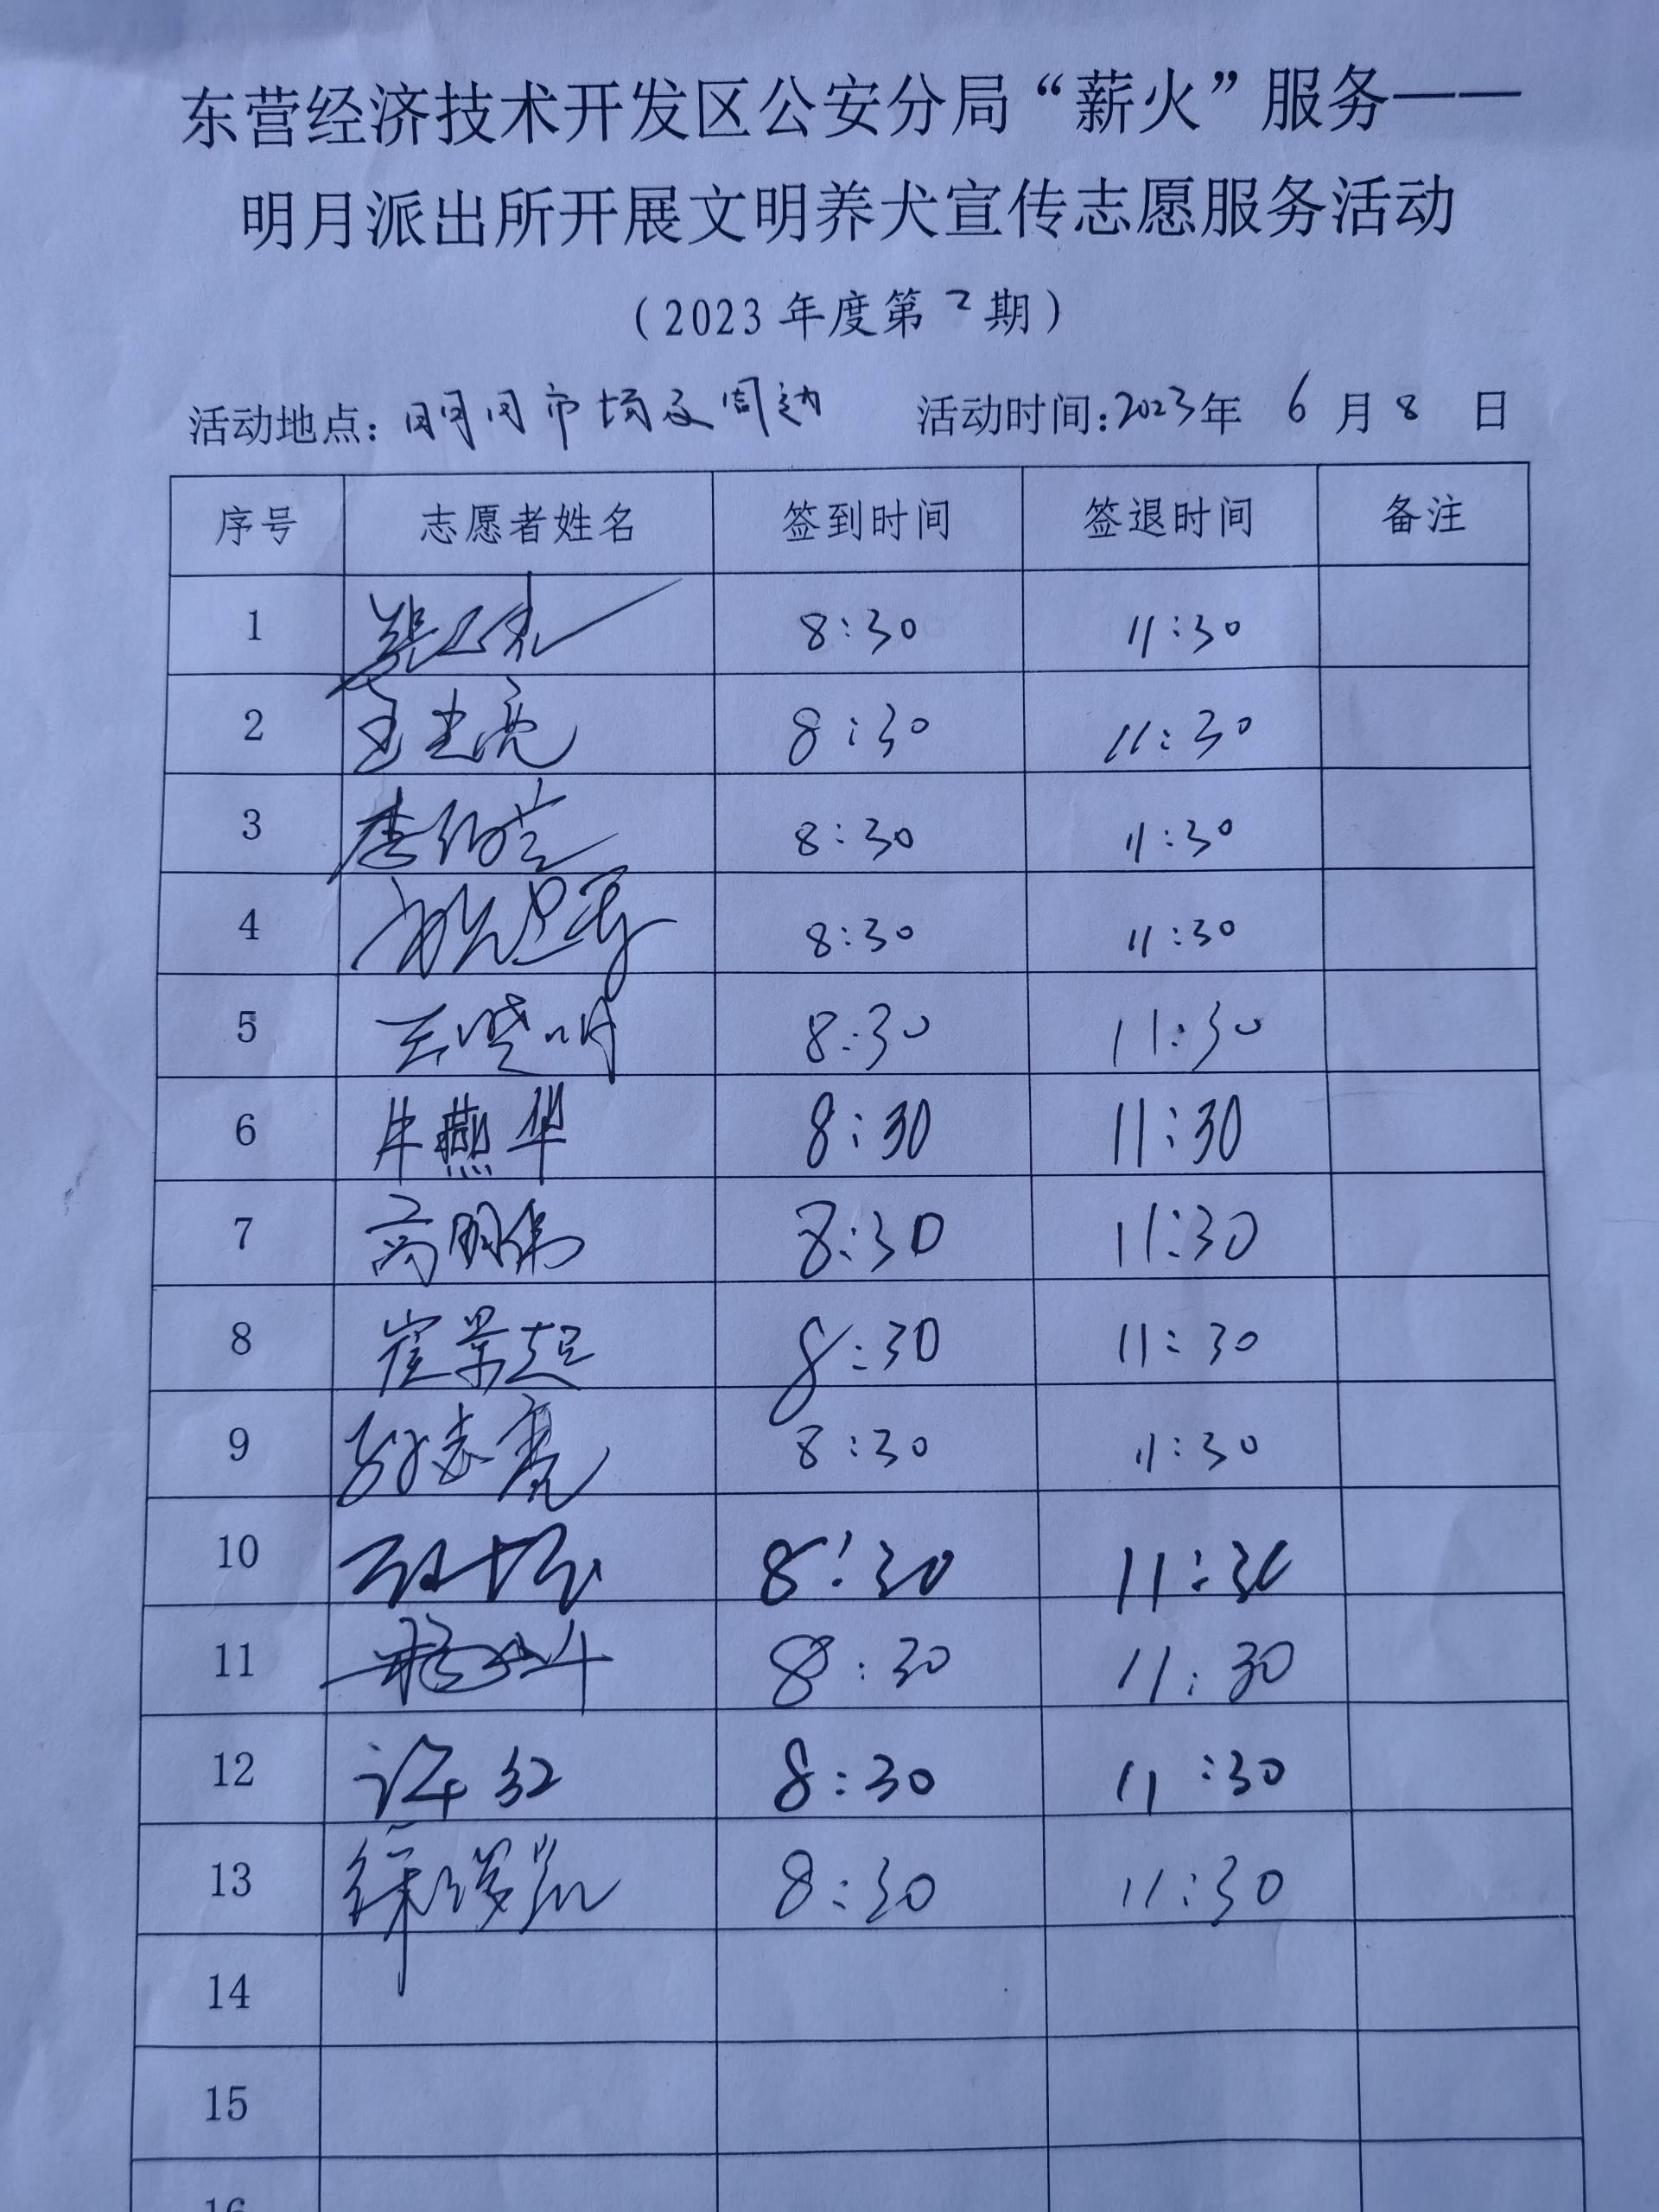 东营经济技术开发区公安分局“薪火”服务——
明月派出所开展文明养犬宣传志愿服务活动
（2023年度第2期）
活动地点：明月市场及周边 活动时间：2023年 6月8日
序号 志愿者姓名 签到时间 签退时间 备注
1 8:30 11:30
2 8:30 11:30
3 8:30 11:30
4 8:30 11:30
5 8:30 11:30
6 牛燕华 8:30 11:30
7 高明伟 8:30 11:30
8 崔景起 8:30 11:30
9 8:30 11:30
10 8:30 11:30
11 8:30 11:30
12 许红 8:30 11:30
13 8:30 11:30
14
15
16